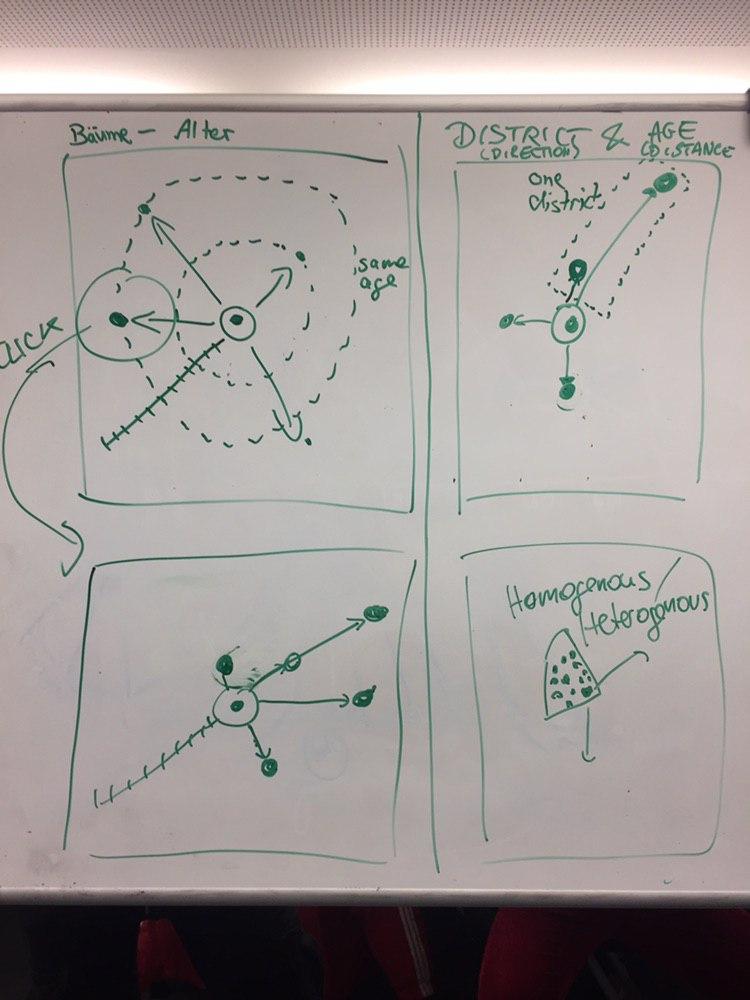 Bäume - Alter
same
age
CLICK
DISTRICT & AGE
(DIRECTION) (DISTANCE)
one
district
Homogenous /
Heterogenous